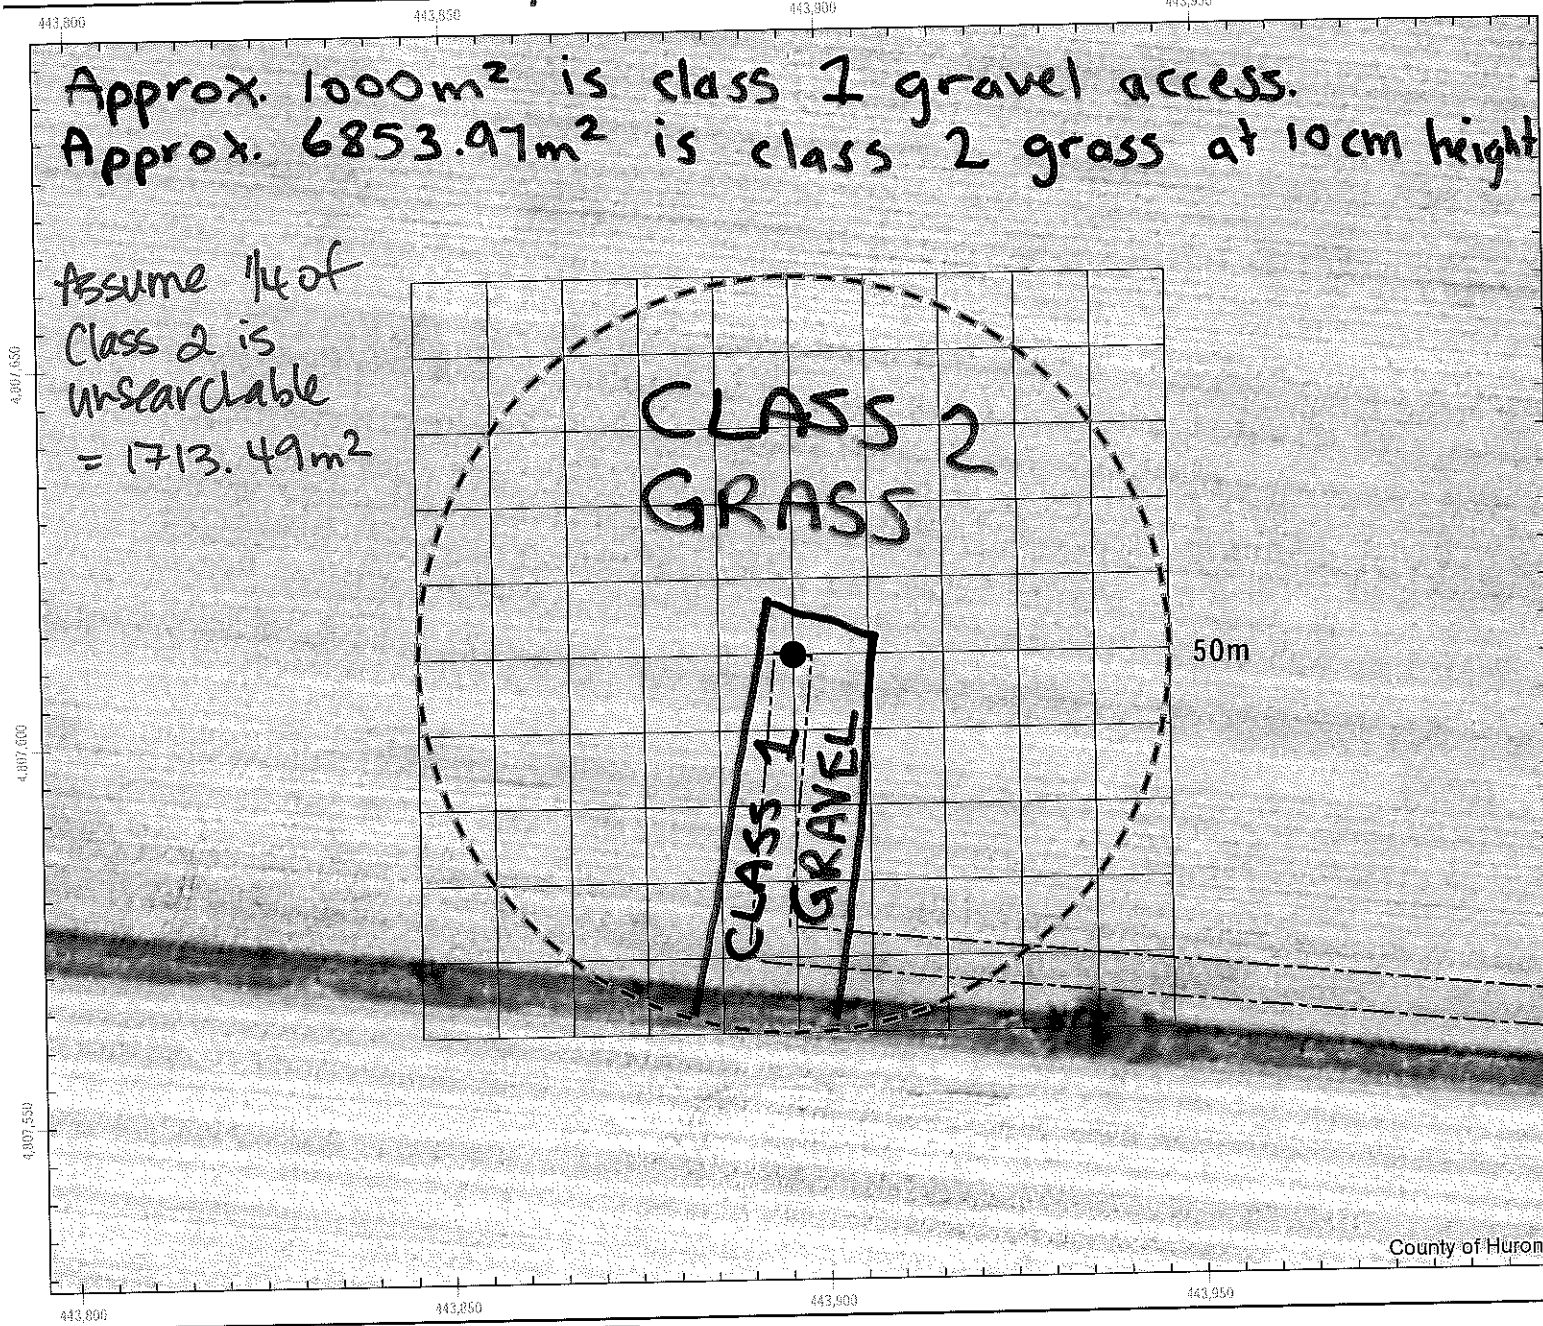 443,800 443,850 443,900 443,950
Approx. 1000m² is class 1 gravel access.
Approx. 6853.97m² is class 2 grass at 10cm height
Assume 1/4 of
Class 2 is
unsearchable
= 1713.49m²
4,807,650
CLASS 2
GRASS
50m
4,807,600
CLASS 1
GRAVEL
4,807,550
County of Huron
443,800 443,850 443,900 443,950